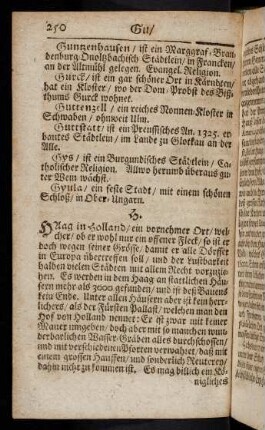 250 Gu/
Guntzenhausen / ist ein Marggraf-Bran-
denburg Onoltzbachisch Städtlein / in Francken/
an der Altmühl gelegen. Evangel. Religion.
Gurck / ist ein gar schöner Ort in Kärndten/
hat ein Kloster / wo der Dom-Probst des Biß-
thums Gurck wohnet.
Guttenzell / ein reiches Nonnen-Kloster in
Schwaben / ohnweit Ulm.
Guttstatt / ist ein Preussisches An. 1325. er-
bautes Städtlein / im Lande zu Glottau an der
Alle.
Gys / ist ein Burgundisches Städtlein / Ca-
tholischer Religion. Allwo herumb überaus gu-
ter Wein wächst.
Gyula / ein feste Stadt / mit einem schönen
Schloß / in Ober-Ungarn.
H.
Haag in Holland / ein vornehmer Ort / wel-
cher / ob er wohl nur ein offener Fleck / so ist er
doch wegen seiner Grösse / damit er alle Dörffer
in Europa übertreffen soll / und der Lustbarkeit
halben vielen Städten mit allem Recht vorzuzie-
hen. Es werden in dem Haag an stattlichen Häu-
sern mehr als 3000 gefunden / und ist des Bauens
kein Ende. Unter allen Häusern aber ist kein herr-
lichers / als der Fürsten Pallast / welchen man den
Hof von Holland nennet: Er ist zwar mit keiner
Mauer umgeben / doch aber mit so manchen wun-
derbarlichen Wasser-Gräben alles durchschossen/
und mit verschiedenen Pforten verwahret / daß mit
einem grossen Hauffen / und sonderlich Reuterey/
dahin nicht zu kommen ist. Es mag billich ein Kö-
nigliches